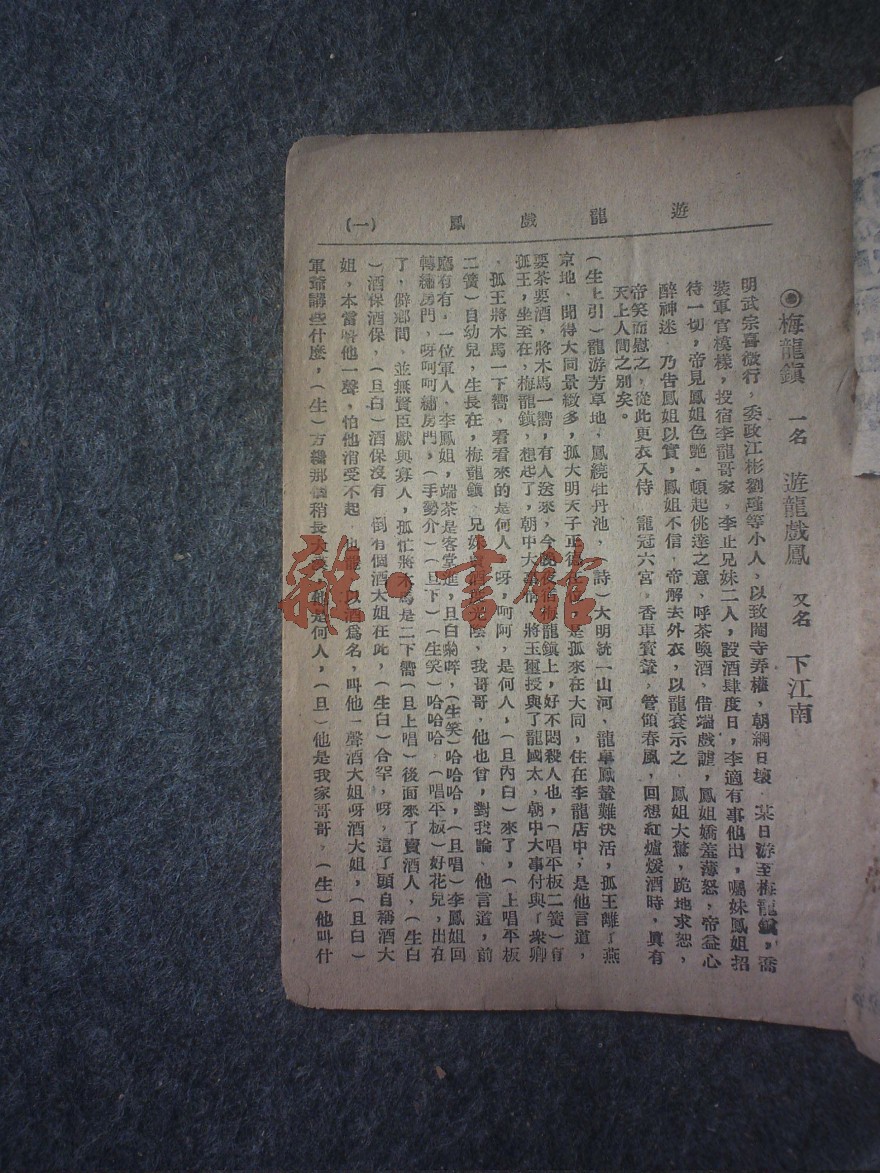 遊龍戲鳳 (一)
◉梅龍鎮 一名 遊龍戲鳳 又名 下江南
明武宗喜微行，委政江彬劉瑾等小人，以致閹寺弄權，朝綱日壞、某日游至梅龍鎮，喬
裝軍官模樣，投宿李龍哥家，李止兄妹二人，設酒肆度日，李適有事他出，囑妹鳳姐招
待一切，帝見鳳姐色艷，頓起佻達之意，呼茶喚酒、借端戲謔，鳳姐嬌羞薄怒，帝益心
醉神迷、乃告鳳姐以實，鳳姐不信、帝解去外衣，以龍袞示之、鳳姐大驚，跪地求恕，
帝笑而慰之，從此更衣入侍、寵冠六宮，香車寶輦，管領春風，回想紅爐煖酒時，真有
天上人間之別矣。
(生上引)龍游芳草地、鳳繞牡丹池，(詩)大明統一山河、龍車鳳輦難快活，孤王離了燕
京地、聞得大同景緻多，孤大明天子正德 是孤來在大同，住在李龍店中，是他言道，
要茶要酒，將木馬一嚮，有人送來，今 龍鎮上，好不悶殺人也，(唱平板二簧)有
孤王，坐至在，梅龍鎮，想起了，朝中大事情，將玉璽授與了龍國太、朝中大事付與了衆卿
、孤王將木馬一下嚮、看看來的是何人、呀，呵阿，是何人，(旦內白)來了，(上唱平板
二簧)自幼兒，生長在，梅龍鎮、兄妹 我哥哥、他也曾，對我論、他言道，前
廳有有，一位軍人、李鳳姐，端茶是客堂進，旦白喲啐，(生笑)哈哈哈，(旦唱)李鳳姐回
轉繡房門、呀呵呵繡房門，(手勢介)(旦下)(生笑)哈哈哈、(唱平板)好花兒，出在
了，僻鄉間、並無賢臣獻與寡人，孤忙將木馬是二下嚮(旦上唱)後面來了賣酒人，(生白
)酒保酒保、(旦白)酒保沒有 倒有個酒大姐在此，(生白)合罕，呀，這丫頭自稱酒大
姐，本當叫他一聲，怕他消受不起、也罷 以酒爲名，叫他一聲酒大姐呀酒大姐，(旦白)
軍爺講些什麽，(生)方纔那個稍長 他是何人，(旦)他是我家哥哥，(生)他叫什
雜·書館